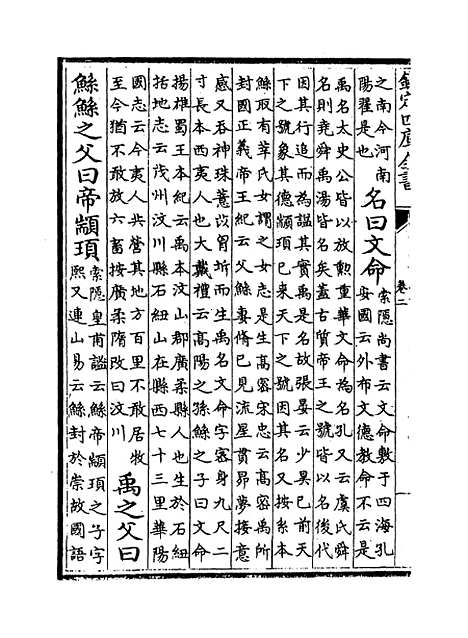 欽定四庫全書
卷二
之南今河南
陽翟是也
名曰文命
索隱尚書云文命敷于四海孔
安國云外布文德教命不云是
禹名太史公皆以放勲重華文命為名孔又云虞氏舜
名則堯舜禹湯皆名矣蓋古質帝王之號皆以名後代
因其行追而為諡其實禹是名故張晏云少昊已前天
下之號象其德顓頊已來天下之號因其名又按系本
鯀取有莘氏女謂之女志是生高密宋忠云高密禹所
封國正義帝王紀云父鯀妻脩已見流星貫昴夢接意
感又吞神珠薏苡胷坼而生禹名文命字密身九尺二
寸長本西夷人也大戴禮云高陽之孫鯀之子曰文命
揚雄蜀王本紀云禹本汶山郡廣柔縣人也生於石紐
括地志云茂州汶川縣石紐山在縣西七十三里華陽
國志云今夷人共營其地方百里不敢居牧
至今猶不敢放六畜按廣柔隋改曰汶川
禹之父曰
鯀鯀之父曰帝顓頊
索隱皇甫謐云鯀帝顓頊之子字
熙又連山易云鯀封於崇故國語